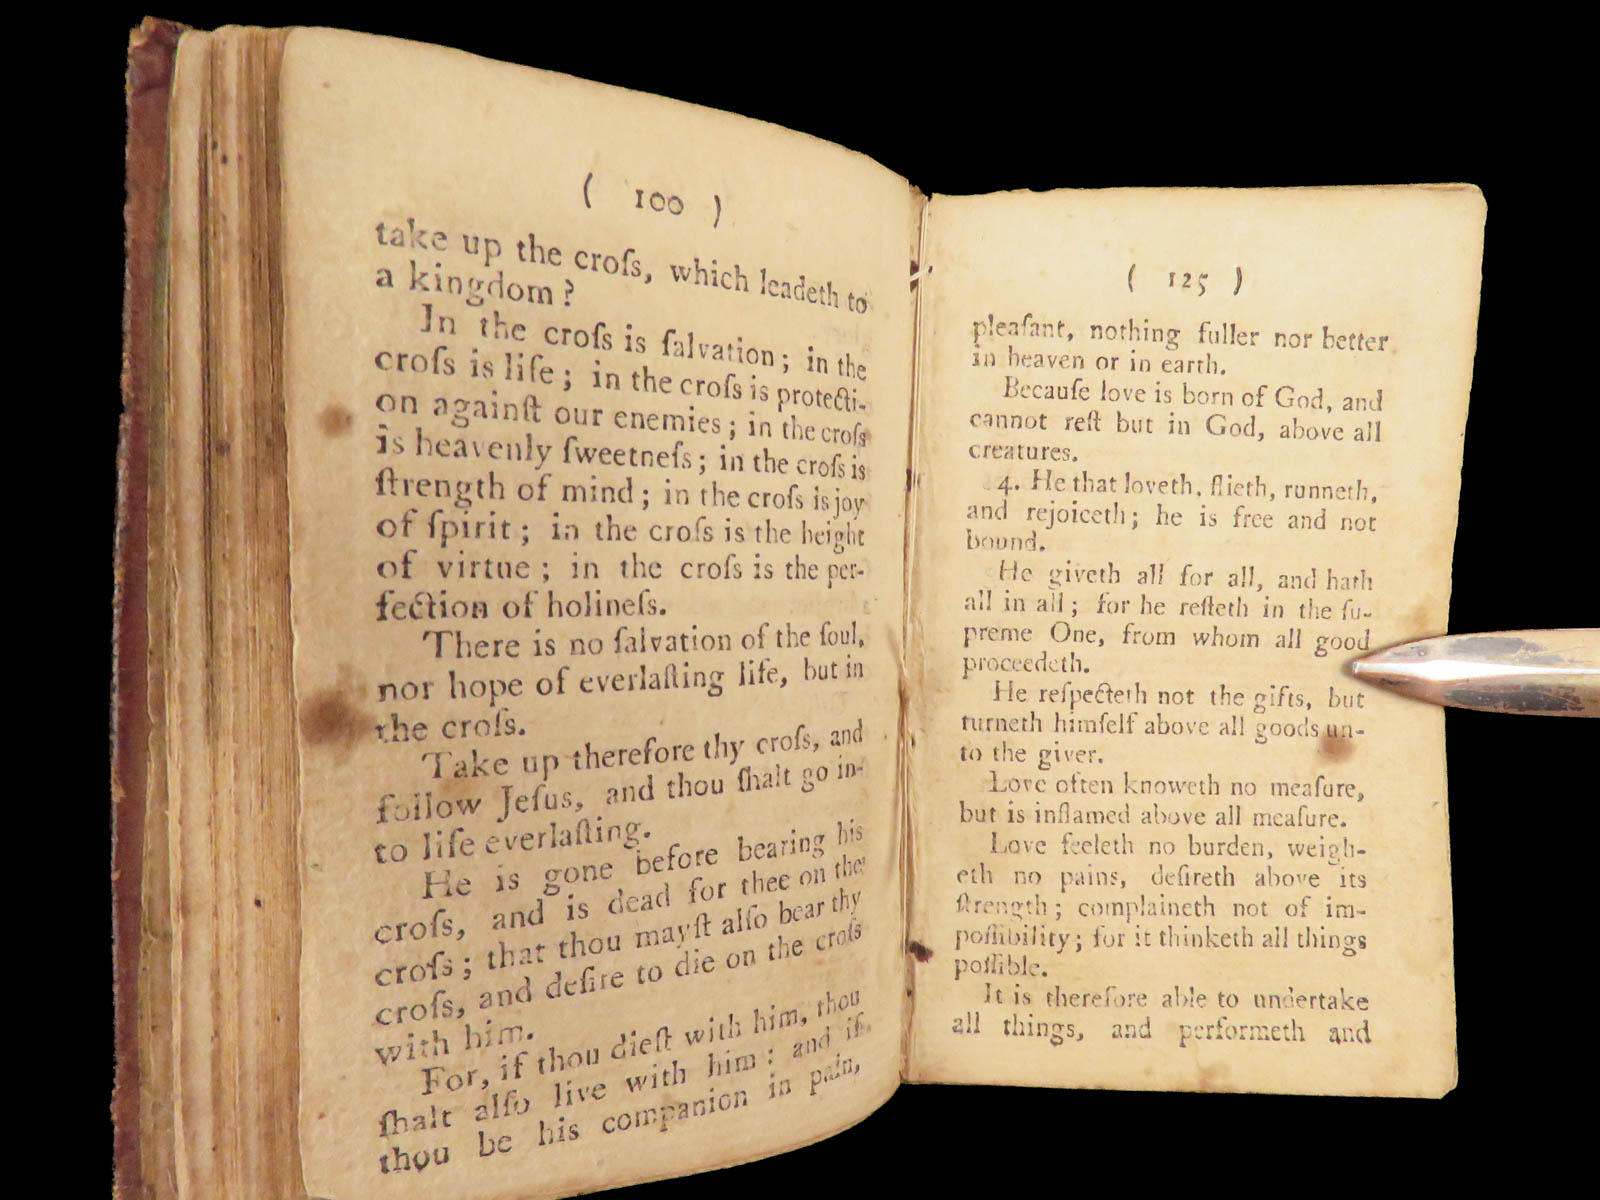 ( 100 )
take up the croſs, which leadeth to
a kingdom?
In the croſs is ſalvation; in the
croſs is life; in the croſs is protecti-
on againſt our enemies; in the croſs
is heavenly ſweetneſs; in the croſs is
ſtrength of mind; in the croſs is joy
of ſpirit; in the croſs is the height
of virtue; in the croſs is the per-
fection of holineſs.
There is no ſalvation of the ſoul,
nor hope of everlaſting life, but in
the croſs.
Take up therefore thy croſs, and
follow Jeſus, and thou ſhalt go in-
to life everlaſting.
He is gone before bearing his
croſs, and is dead for thee on the
croſs; that thou mayſt alſo bear thy
croſs, and deſire to die on the croſs
with him.
For, if thou dieſt with him, thou
ſhalt alſo live with him: and if
thou be his companion in pain,
( 125 )
pleaſant, nothing fuller nor better
in heaven or in earth.
Becauſe love is born of God, and
cannot reſt but in God, above all
creatures.
4. He that loveth, flieth, runneth,
and rejoiceth; he is free and not
bound.
He giveth all for all, and hath
all in all; for he reſteth in the ſu-
preme One, from whom all good
proceedeth.
He reſpecteth not the gifts, but
turneth himſelf above all goods un-
to the giver.
Love often knoweth no meaſure,
but is inflamed above all meaſure.
Love feeleth no burden, weigh-
eth no pains, deſireth above its
ſtrength; complaineth not of im-
poſſibility; for it thinketh all things
poſſible.
It is therefore able to undertake
all things, and performeth and